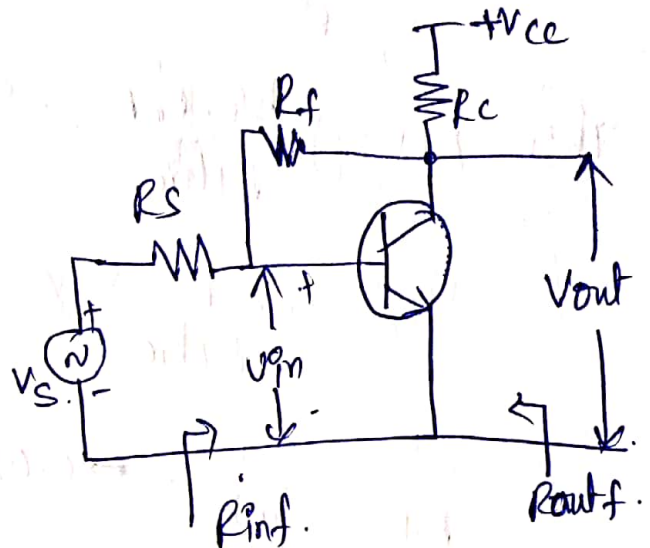 +Vcc
Rf
Rc
Rs
+
Vin
-
Vout
+
Vs.
-
Rinf.
Routf.